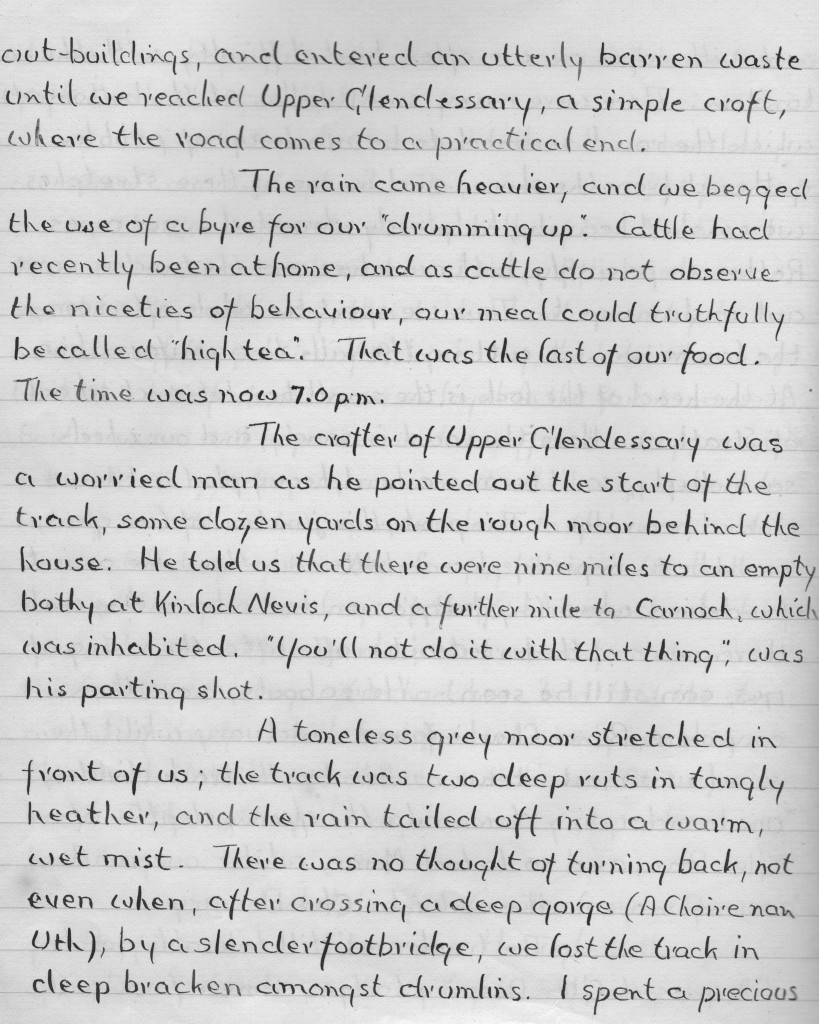 out-buildings, and entered an utterly barren waste
until we reached Upper Glendessary, a simple croft,
where the road comes to a practical end.
The rain came heavier, and we begged
the use of a byre for our "drumming up". Cattle had
recently been at home, and as cattle do not observe
the niceties of behaviour, our meal could truthfully
be called "high tea". That was the last of our food.
The time was now 7.0 p.m.
The crofter of Upper Glendessary was
a worried man as he pointed out the start of the
track, some dozen yards on the rough moor behind the
house. He told us that there were nine miles to an empty
bothy at Kinloch Nevis, and a further mile to Carnoch, which
was inhabited. "You'll not do it with that thing", was
his parting shot.
A toneless grey moor stretched in
front of us; the track was two deep ruts in tangly
heather, and the rain tailed off into a warm,
wet mist. There was no thought of turning back, not
even when, after crossing a deep gorge (A Choire nan
Uth), by a slender footbridge, we lost the track in
deep bracken amongst drumlins. I spent a precious